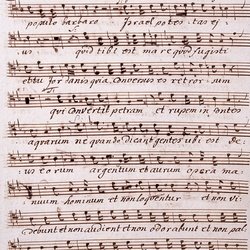 populo barbaro Israel potestas ej
us quid tibi est mare quod fugisti
et tu jordanis quia Conversus es retrorsum
qui Convertit petram et rupem in fontes
aquarum ne quando dicant gentes ubi est De
us eorum argentum et aurum opera ma
nuum hominum et non loquentur et non vi
debunt et non audient et non odorabunt et non pal